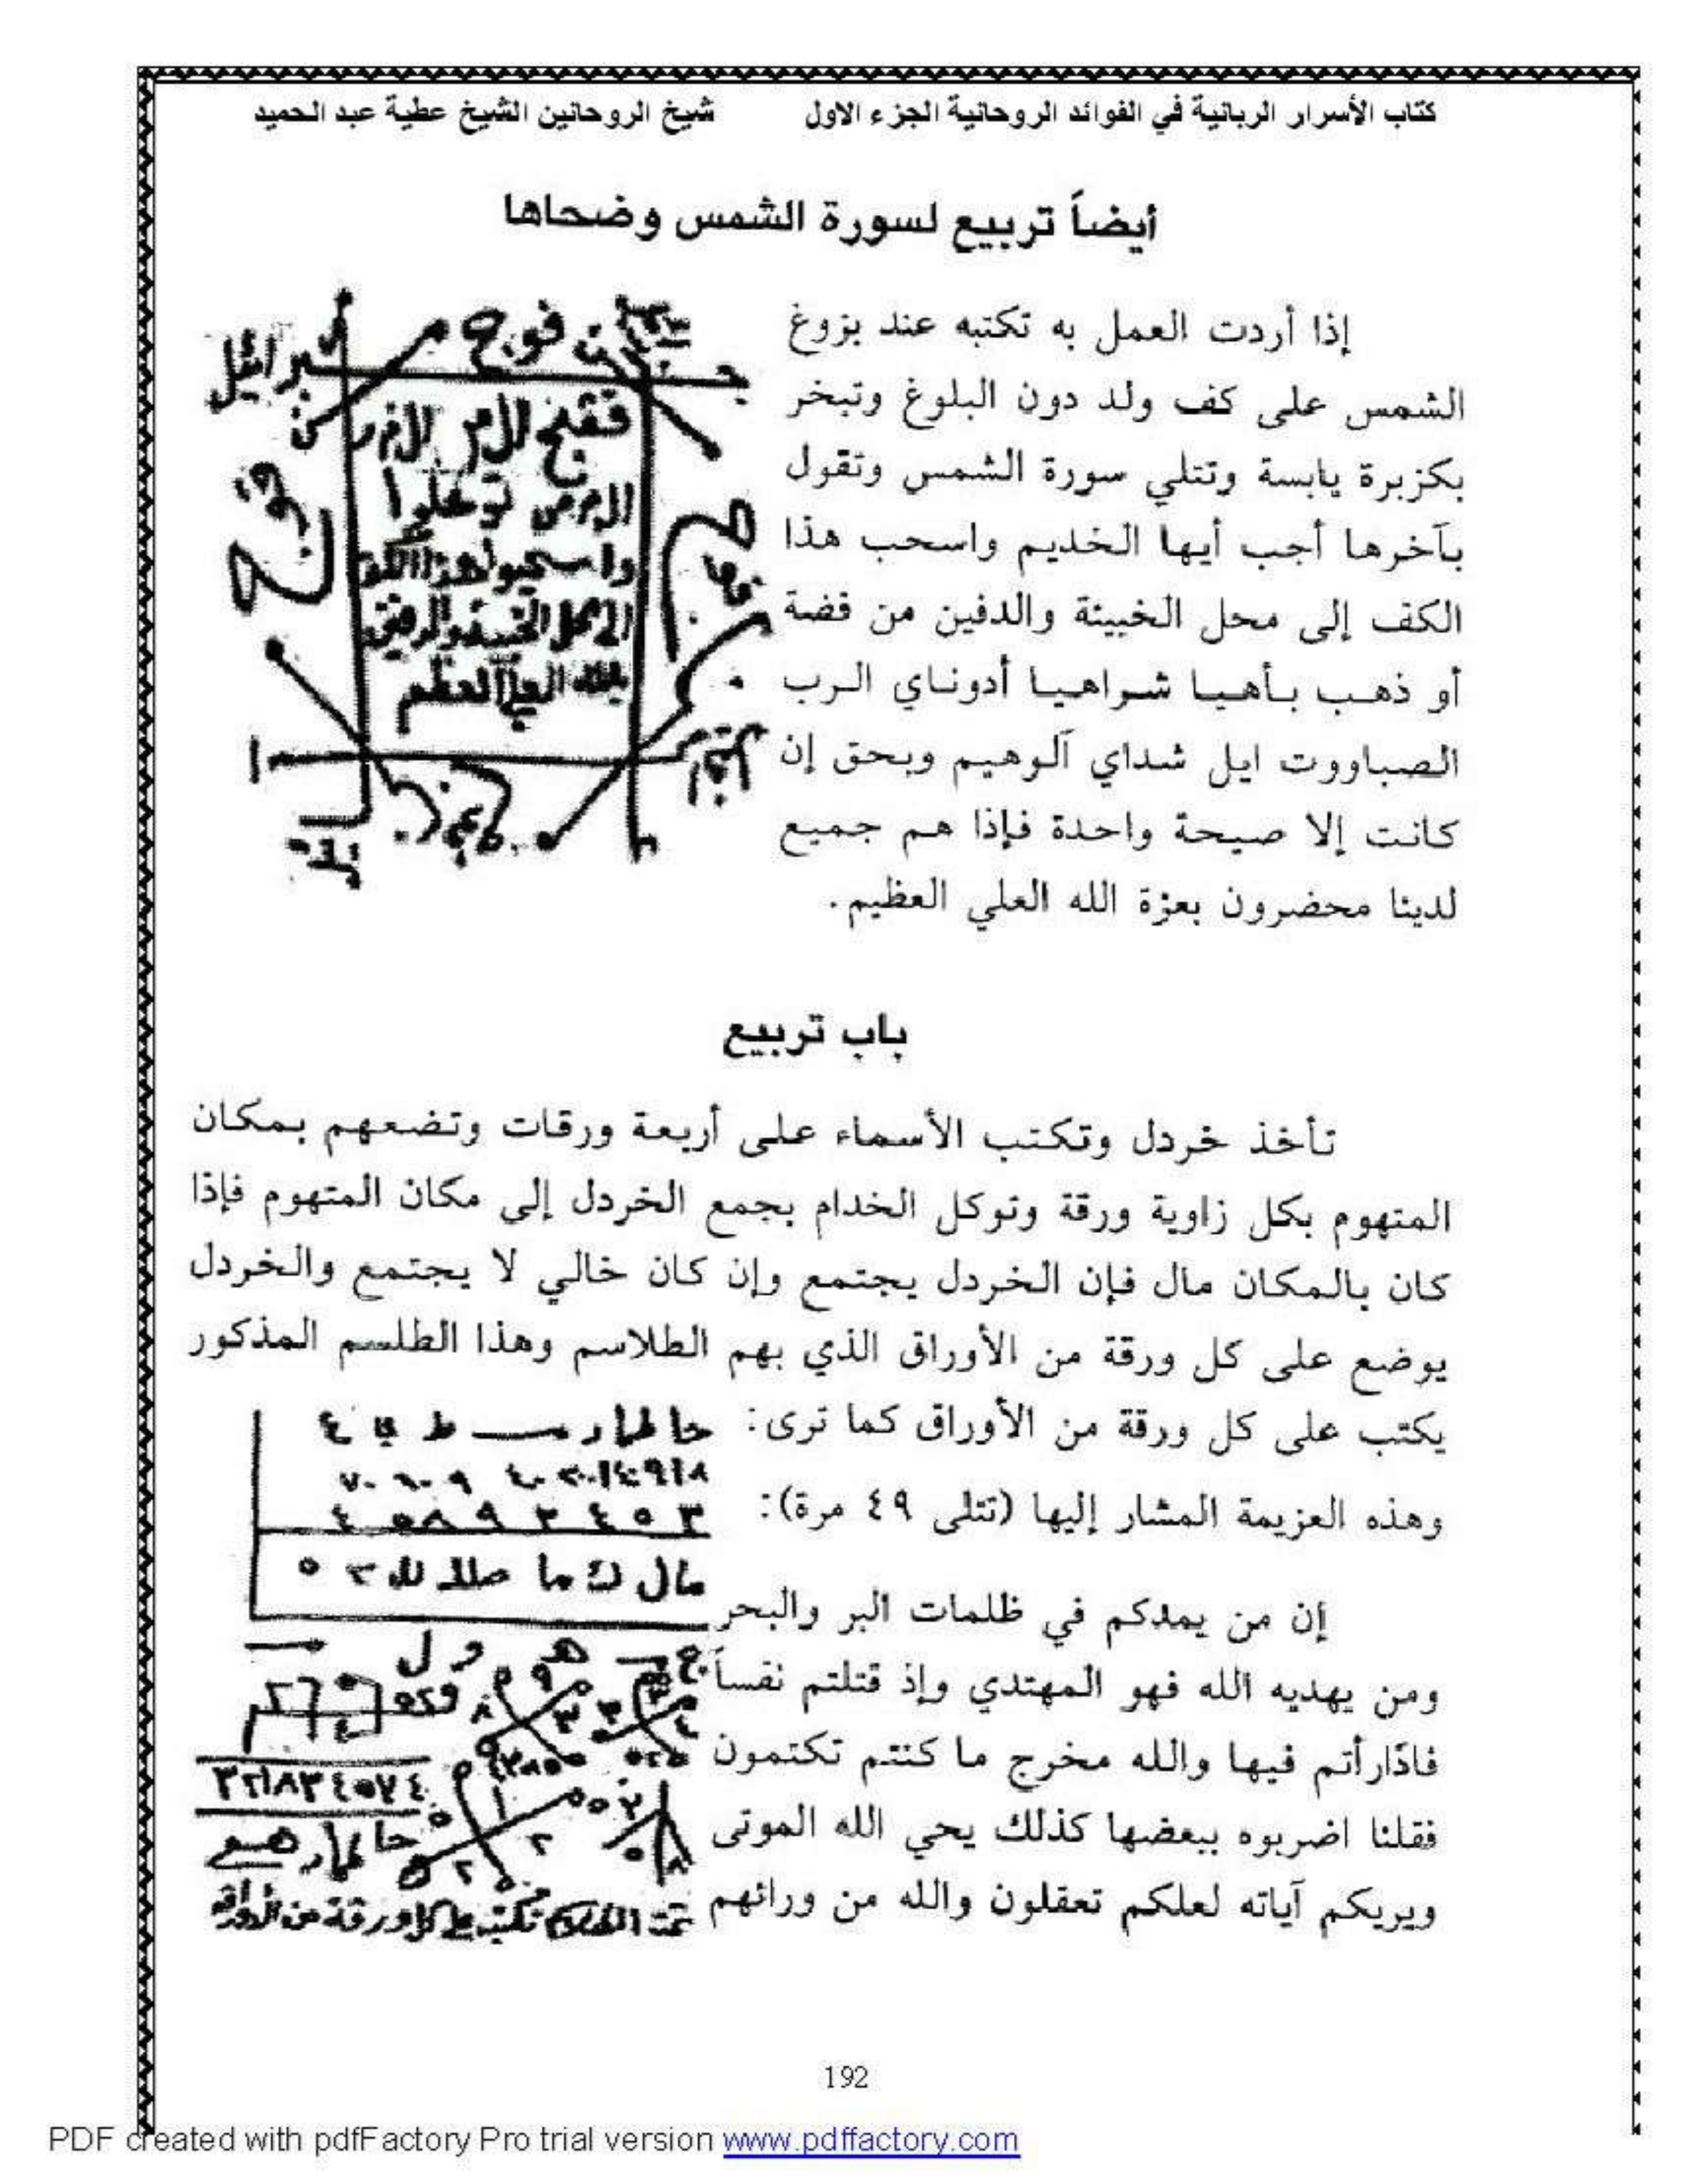 كتاب الأسرار الربانية في الفوائد الروحانية الجزء الاول شيخ الروحانين الشيخ عطية عبد الحميد
أيضاً تربيع لسورة الشمس وضحاها
إذا أردت العمل به تكتبه عند بزوغ
الشمس على كف ولد دون البلوغ وتبخر
بكزبرة يابسة وتتلي سورة الشمس وتقول
بآخرها أجب أيها الخديم واسحب هذا
الكف إلى محل الخبيئة والدفين من فضة
أو ذهب بأهيا شراهيا أدوناي الرب
الصباووت ايل شداي آلوهيم وبحق إن
كانت إلا صيحة واحدة فإذا هم جميع
لدينا محضرون بعزة الله العلي العظيم.
باب تربيع
تأخذ خردل وتكتب الأسماء على أربعة ورقات وتضعهم بمكان
المتهوم بكل زاوية ورقة وتوكل الخدام بجمع الخردل إلى مكان المتهوم فإذا
كان بالمكان مال فإن الخردل يجتمع وإن كان خالي لا يجتمع والخردل
يوضع على كل ورقة من الأوراق الذي بهم الطلاسم وهذا الطلسم المذكور
يكتب على كل ورقة من الأوراق كما ترى:
وهذه العزيمة المشار إليها (تتلى ٤٩ مرة):
٣ ٥ ٤ ٣ ٩ ٨ ٥ ٤
إن من يمدكم في ظلمات البر والبحر
ومن يهديه الله فهو المهتدي وإذ قتلتم نفساً
فادّارأتم فيها والله مخرج ما كنتم تكتمون
فقلنا اضربوه ببعضها كذلك يحي الله الموتى
ويريكم آياته لعلكم تعقلون والله من ورائهم
192
PDF created with pdfFactory Pro trial version www.pdffactory.com